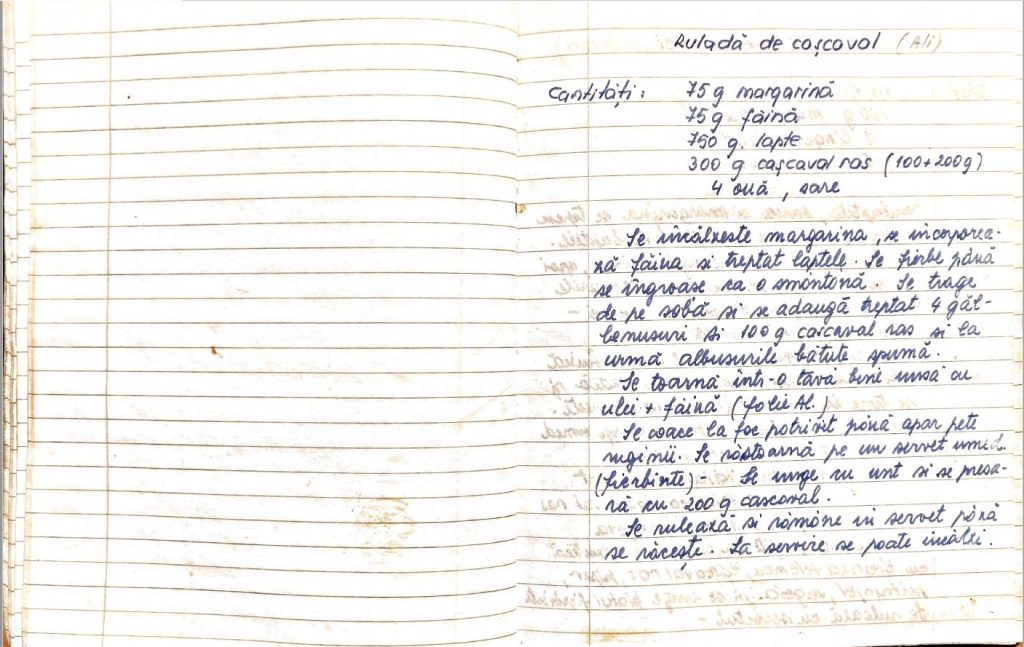 Ruladă de cașcaval (Ali)
Cantități: 75 g margarină
75 g făină
750 g. lapte
300 g cașcaval ras (100+200g)
4 ouă, sare
Se încălzeste margarina, se incorporea-
ză făina si treptat laptele. Se fierbe până
se îngroase ca o smântână. Se trage
de pe sobă si se adaugă treptat 4 găl-
benusuri si 100 g cascaval ras si la
urmă albusurile bătute spumă.
Se toarnă într-o tavă bine unsă cu
ulei + făină (folie Al.)
Se coace la foc potrivit până apar pete
ruginii. Se răstoarnă pe un servet umed
(fierbinte) - Se unge cu unt si se presa-
ră cu 200 g cascaval.
Se rulează si rămâne in servet până
se răcește. La servire se poate incălzi.